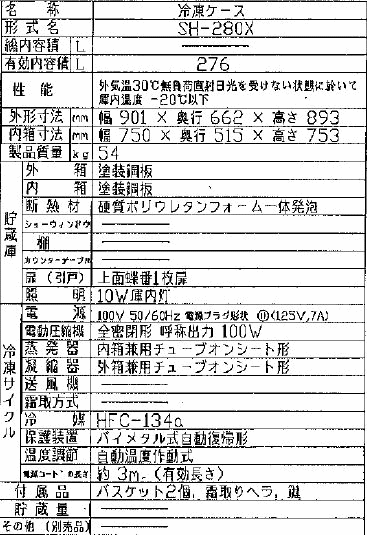 名 称 冷凍ケース
形式名 SH-280X
総内容積 L ————
有効内容積 L 276
性 能 外気温30℃無負荷直射日光を受けない状態に於いて
庫内温度 -20℃以下
外形寸法 mm 幅 901 × 奥行 662 × 高さ 893
内箱寸法 mm 幅 750 × 奥行 515 × 高さ 753
製品質量 kg 54
貯蔵庫
外 箱 塗装鋼板
内 箱 塗装鋼板
断熱材 硬質ポリウレタンフォーム一体発泡
ショーウィンドウ ————
棚 ————
カウンターテーブル ————
扉 (引戸) 上面蝶番1枚扉
照 明 10W庫内灯
冷凍サイクル
電 源 100V 50/60Hz 電源プラグ形状 (125V,7A)
電動圧縮機 全密閉形 呼称出力 100W
蒸発器 内箱兼用チューブオンシート形
凝縮器 外箱兼用チューブオンシート形
送風機 ————
霜取方式 ————
冷 媒 HFC-134a
保護装置 バイメタル式自動復帰形
温度調節 自動温度作動式
電源コードの長さ 約 3m. (有効長さ)
付属品 バスケット2個, 霜取りヘラ, 鍵
貯蔵量 ————
その他 (別売品) ————